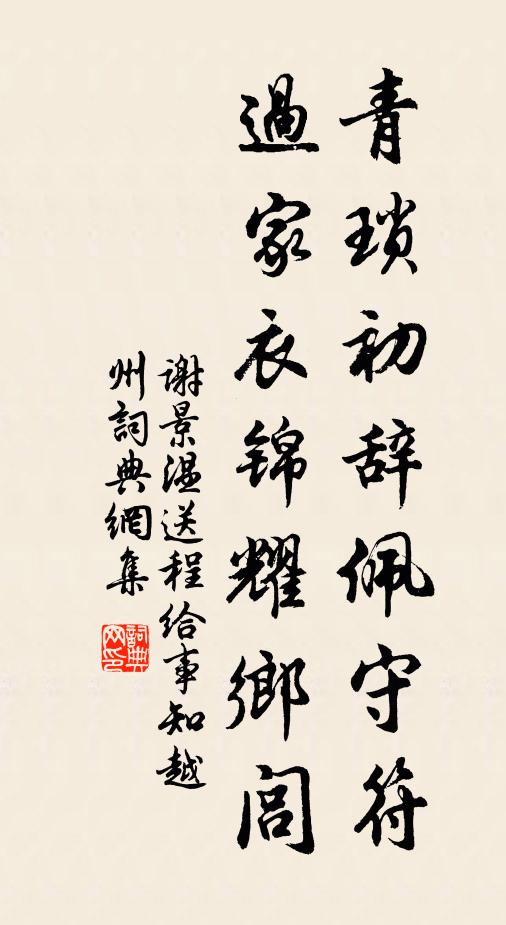 青琐初辞佩守符
過家衣锦耀鄉闾
谢景温送程给事知越
州詞典網集
詞典网印